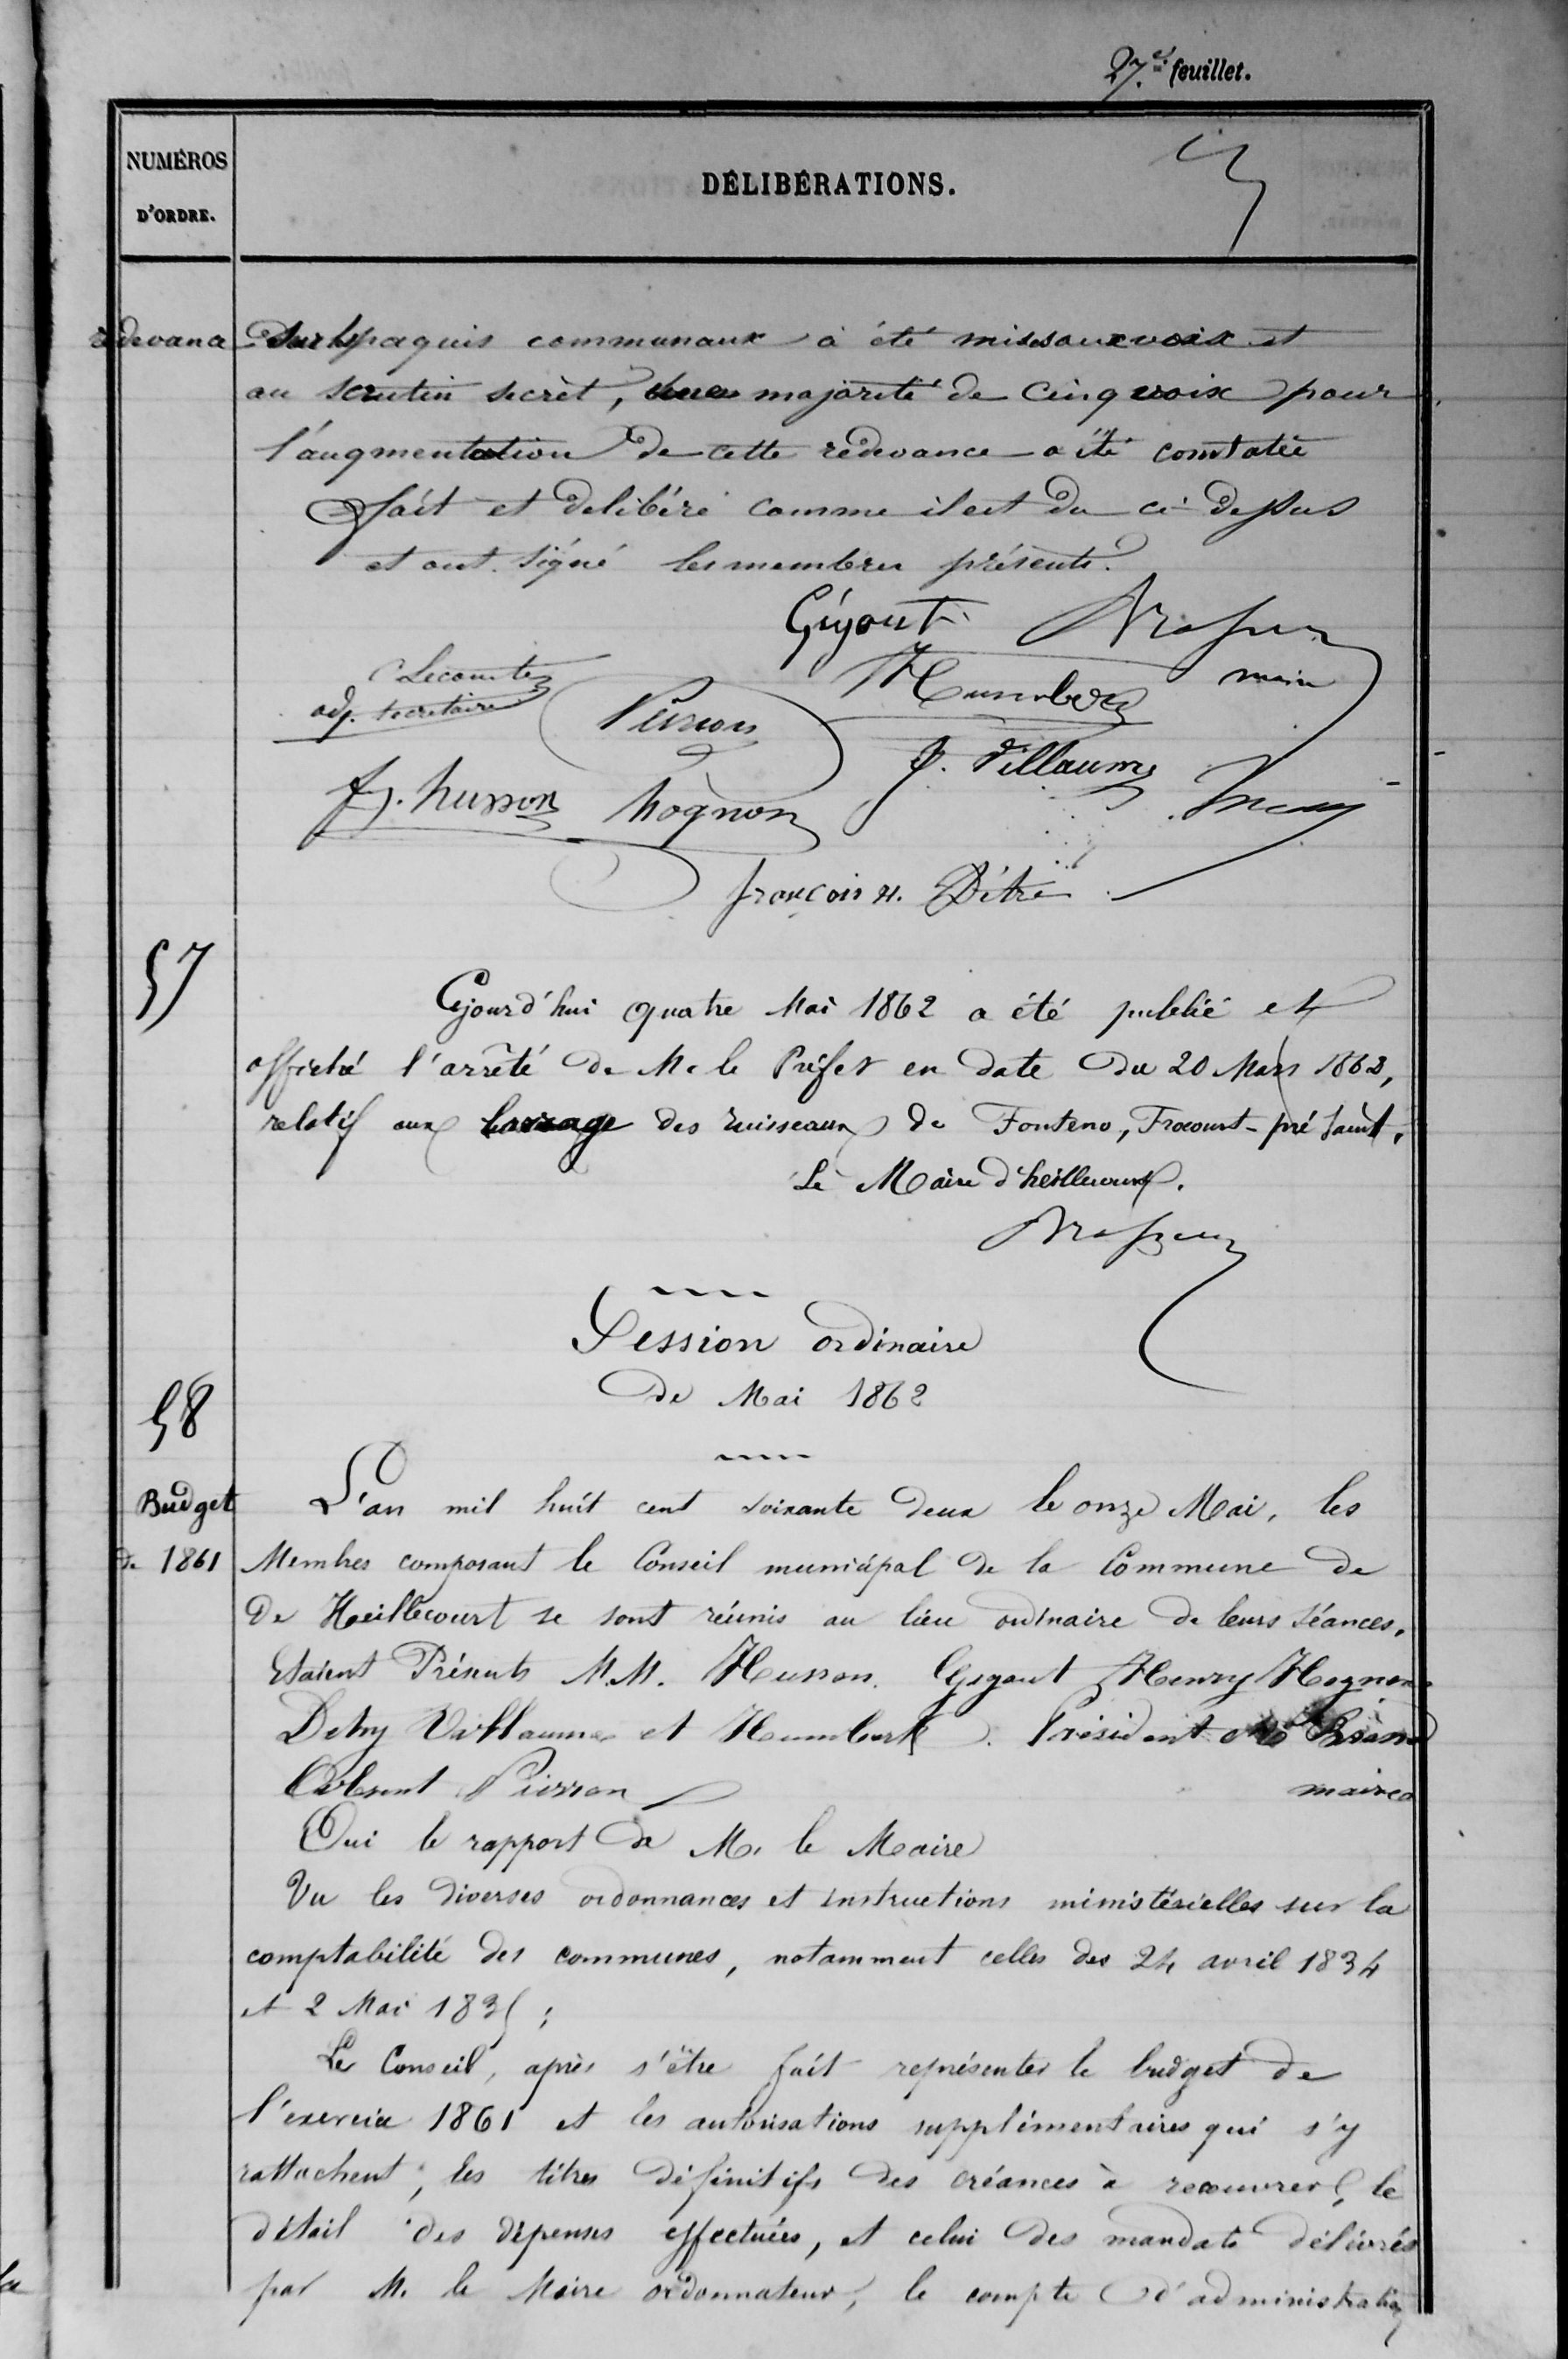 27.e feuillet.
NUMÉROS
D'ORDRE.
DÉLIBÉRATIONS.
redevance sur les paquis communaux à été mise aux voix et
au scrutin secrèt, une majorité de cinq voix pour
l'augmentation de cette redevance a été constatée
fait et delibéré comme il est du ci-dessus
et ont signé les membres présents.
Gigout
maire
C Lecomte
adj. secretaire
Pierron
Humbert
J. husson
hognon
Villaume
françois Détré
57
Cejourd'hui quatre Mai 1862 a été publié et
affiché l'arrêté de M. le Préfet en date du 20 Mars 1862,
relatif aux des ruisseaux de Fonteno, Frocourt - pré Saint,
Le Maire d'heillecourt.
Session ordinaire
de Mai 1862
58
Budget
de 1861
L'an mil huit cent soixante deux le onze Mai, les
Membres composant le Conseil municipal de la Commune de
de Heillecourt se sont réunis au lieu ordinaire de leurs séances.
Etaient Présents M.M. Husson. Gigout Henry Hognon
Detry Villaume et Humbert. Président
Absent Pierron
maire
Oui le rapport de M. le Maire
Vu les diverses ordonnances et instructions ministérielles sur la
comptabilité des communes, notamment celles des 24 avril 1834
et 2 Mai 1835;
Le Conseil, après s'être fait représenter le budget de
l'exercice 1861 et les autorisations supplémentaires qui s'y
rattachent, les titres définitifs des créances à recouvrer, le
détail des dépenses effectuées, et celui des mandats délivrés
par M. le Maire ordonnateur, le compte d'administration